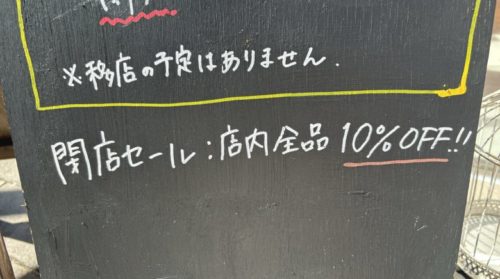 ※移店の予定はありません.
閉店セール:店内全品 10%OFF!!